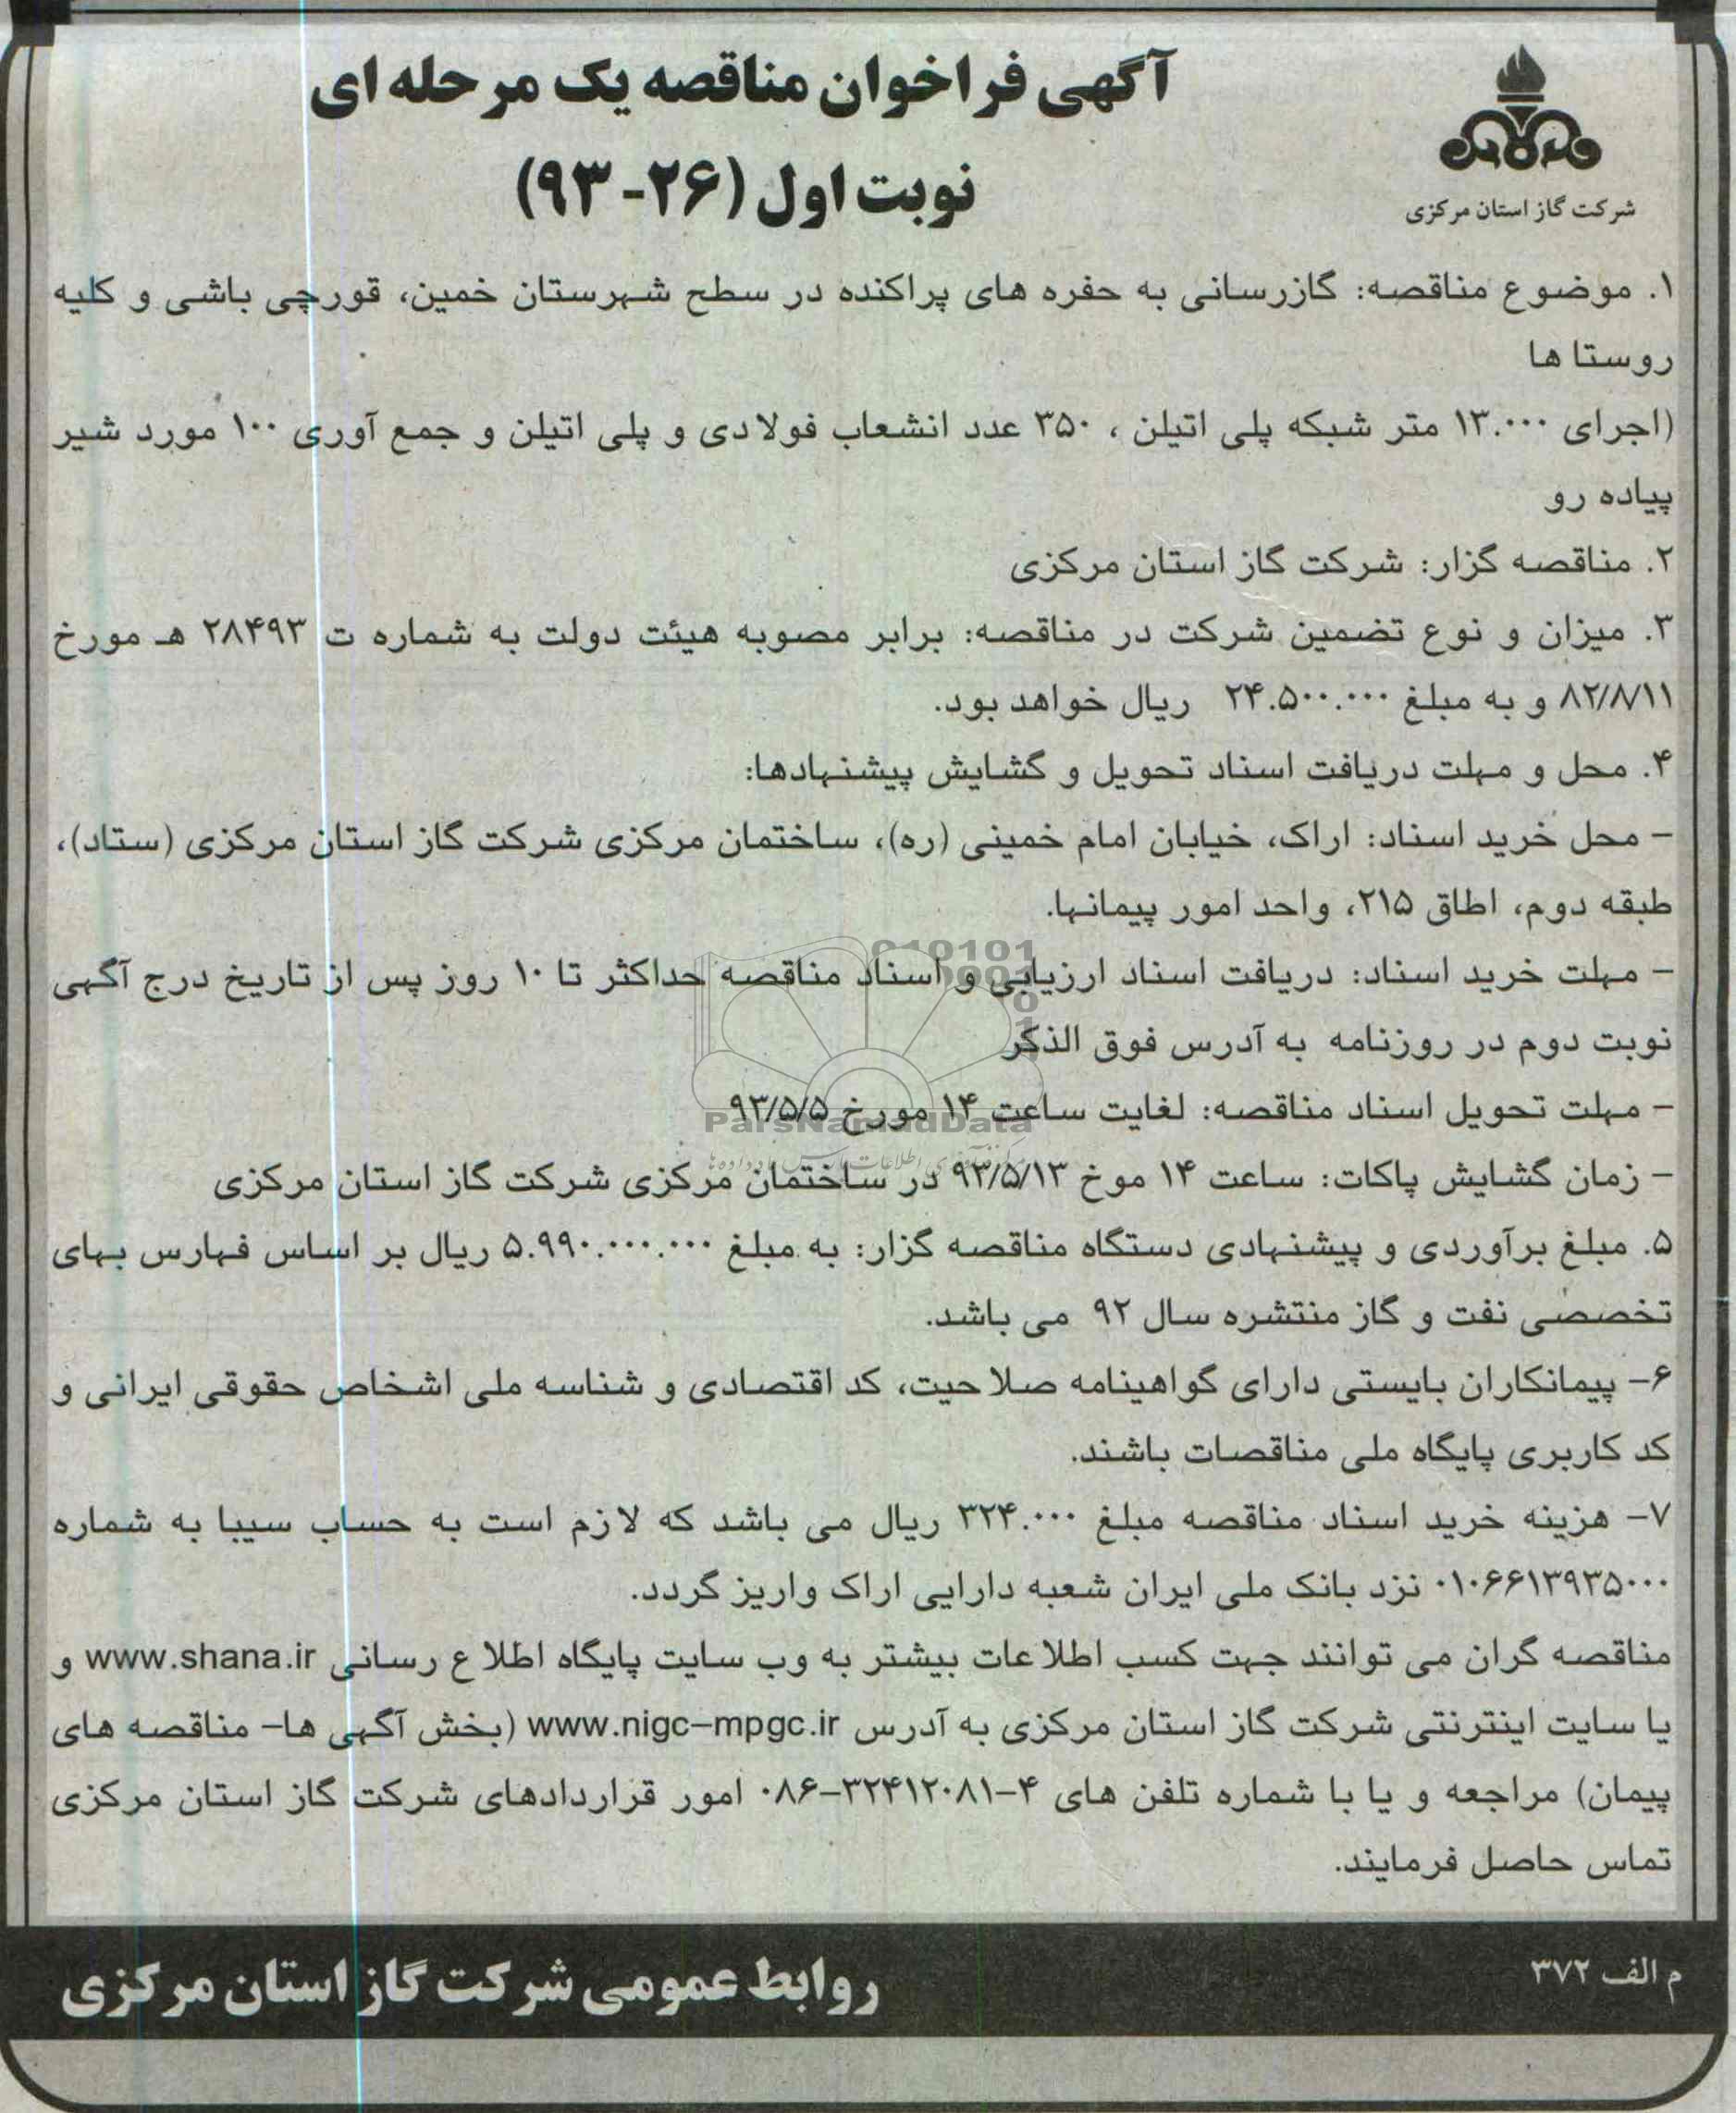 آگهی فراخوان مناقصه یک مرحله ای
نوبت اول (۲۶- ۹۳)
شرکت گاز استان مرکزی
۱. موضوع مناقصه: گازرسانی به حفره های پراکنده در سطح شهرستان خمین، قورچی باشی و کلیه
روستا ها
(اجرای ۱۳.۰۰۰ متر شبکه پلی اتیلن ، ۳۵۰ عدد انشعاب فولادی و پلی اتیلن و جمع آوری ۱۰۰ مورد شیر
پیاده رو
۲. مناقصه گزار: شرکت گاز استان مرکزی
۳. میزان و نوع تضمین شرکت در مناقصه: برابر مصوبه هیئت دولت به شماره ت ۲۸۴۹۳ هـ مورخ
۸۲/۸/۱۱ و به مبلغ ۲۴.۵۰۰.۰۰۰ ریال خواهد بود.
۴. محل و مهلت دریافت اسناد تحویل و گشایش پیشنهادها:
- محل خرید اسناد: اراک، خیابان امام خمینی (ره)، ساختمان مرکزی شرکت گاز استان مرکزی (ستاد)،
طبقه دوم، اطاق ۲۱۵، واحد امور پیمانها.
- مهلت خرید اسناد: دریافت اسناد ارزیابی و اسناد مناقصه حداکثر تا ۱۰ روز پس از تاریخ درج آگهی
نوبت دوم در روزنامه به آدرس فوق الذکر
- مهلت تحویل اسناد مناقصه: لغایت ساعت ۱۴ مورخ ۹۳/۵/۵
ParsNamadData
- زمان گشایش پاکات: ساعت ۱۴ موخ ۹۳/۵/۱۳ در ساختمان مرکزی شرکت گاز استان مرکزی
۵. مبلغ برآوردی و پیشنهادی دستگاه مناقصه گزار: به مبلغ ۵.۹۹۰.۰۰۰.۰۰۰ ریال بر اساس فهارس بهای
تخصصی نفت و گاز منتشره سال ۹۲ می باشد.
۶- پیمانکاران بایستی دارای گواهینامه صلاحیت، کد اقتصادی و شناسه ملی اشخاص حقوقی ایرانی و
کد کاربری پایگاه ملی مناقصات باشند.
۷- هزینه خرید اسناد مناقصه مبلغ ۳۲۴.۰۰۰ ریال می باشد که لازم است به حساب سیبا به شماره
۰۱۰۶۶۱۳۹۳۵۰۰۰ نزد بانک ملی ایران شعبه دارایی اراک واریز گردد.
مناقصه گران می توانند جهت کسب اطلاعات بیشتر به وب سایت پایگاه اطلاع رسانی www.shana.ir و
یا سایت اینترنتی شرکت گاز استان مرکزی به آدرس www.nigc-mpgc.ir (بخش آگهی ها- مناقصه های
پیمان) مراجعه و یا با شماره تلفن های ۴-۰۸۶-۳۲۴۱۲۰۸۱ امور قراردادهای شرکت گاز استان مرکزی
تماس حاصل فرمایند.
م الف ۳۷۲
روابط عمومی شرکت گاز استان مرکزی